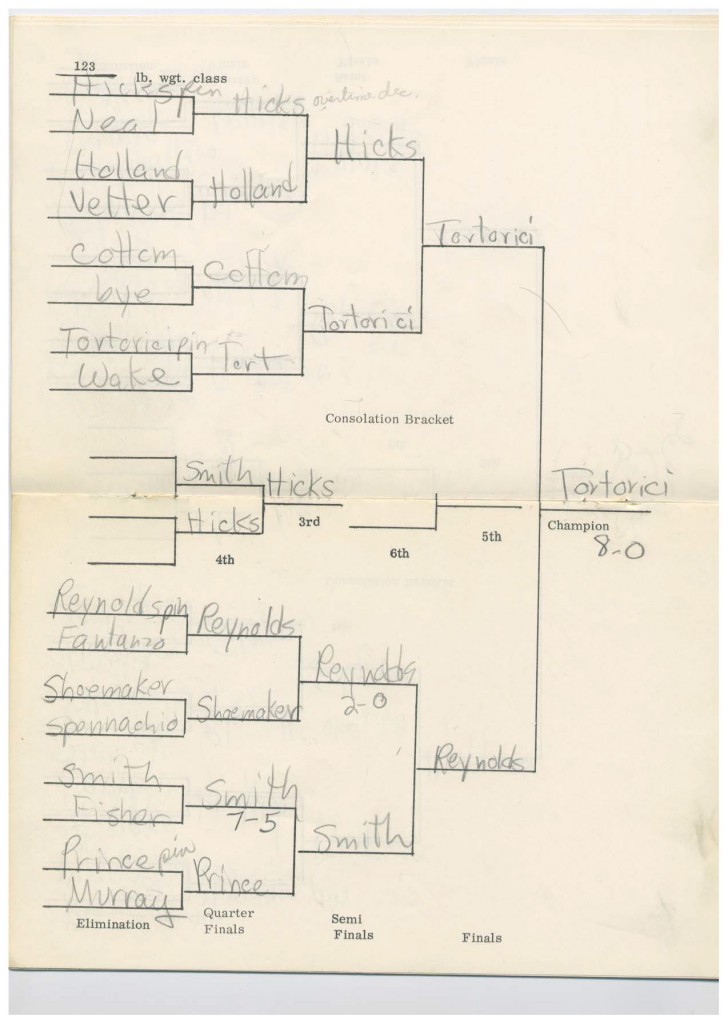 123 lb. wgt. class
Hicks pin
Neal
Hicks overtime dec.
Hicks
Holland
Vetter
Holland
Tortorici
Cottom
bye
Cottom
Tortorici
Tortorici pin
Wake
Tort
Consolation Bracket
Smith
Hicks
Hicks
3rd
4th
6th
5th
Tortorici
Champion
8-0
Reynolds pin
Fantanzo
Reynolds
Reynolds
2-0
Shoemaker
Spennachio
Shoemaker
Reynolds
Smith
Fisher
Smith
7-5
Smith
Prince pin
Murray
Prince
Elimination
Quarter
Finals
Semi
Finals
Finals